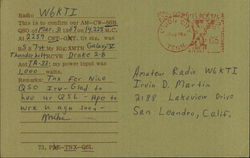 Radio W6KTI
This is to confirm our AM-CW-SSB
QSO of Mar. 3 1967 on 14.228 M.C.
At 2259 GMT. Ur sig. was
5 x 7 My Rig: XMTR Galaxy V
RCVR Drake 2-B
Ant TA-33 my power input was
1,000 watts.
Remarks: Tnx Fer Nice
QSO Irv - Glad to
hve ur QSL - Hpe to
wrk u agn
Mike
73, PSE-TNX-QSL
Amateur Radio W6KTI
Irvin D. Martin
2188 Lakeview Drive
San Leandro, Calif.